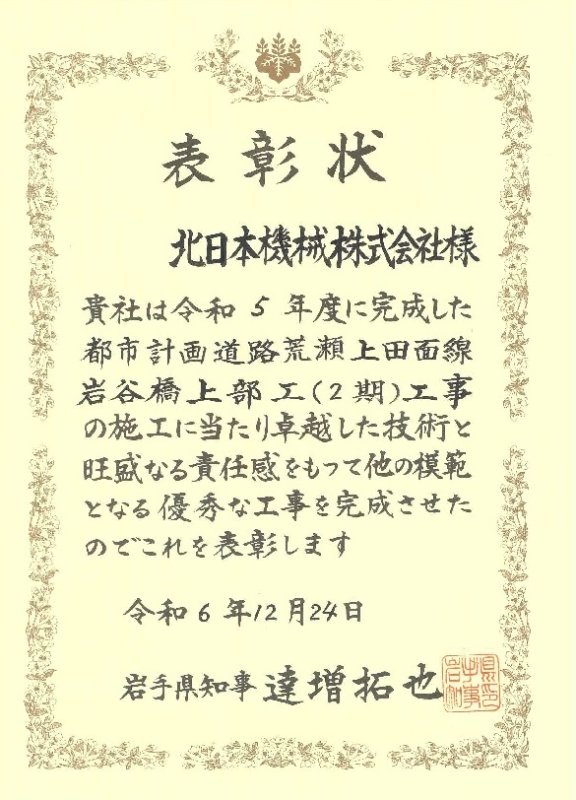 表彰状
北日本機械株式会社様
貴社は令和5年度に完成した
都市計画道路荒瀬上田面線
岩谷橋上部工(2期)工事
の施工に当たり卓越した技術と
旺盛なる責任感をもって他の模範
となる優秀な工事を完成させた
のでこれを表彰します
令和6年12月24日
岩手県知事 達増拓也